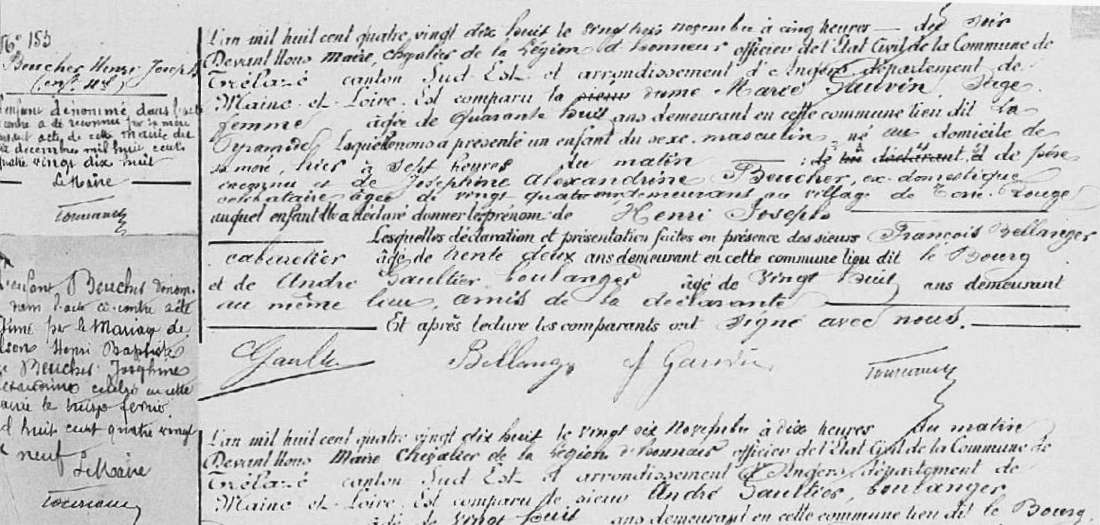 No 153
Boucher Henri Joseph
(enf. nat.)
L'enfant dénommé dans l'acte
contre a été reconnu par sa mère
acte de cette Mairie du
décembre mil huit cent
quatre vingt dix huit
Le Maire
Tournaux
L'an mil huit cent quatre vingt dix huit le vingt trois novembre à cinq heures du soir
Devant Nous Maire, Chevalier de la Légion d'honneur officier de l'Etat Civil de la Commune de
Trélazé canton Sud Est et arrondissement d'Angers, département de
Maine-et-Loire. Est comparu la sieur dame Marie Gauvin, Sage
femme âgée de quarante huit ans demeurant en cette commune lieu dit la
Pyramide Lesquelles nous a présenté un enfant du sexe masculin, né au domicile de
sa mère, hier à sept heures du matin de lui déclarant, et de père
inconnu et de Joséphine Alexandrine Boucher, ex-domestique
célibataire âgée de vingt quatre ans demeurant au village de Rouge
auquel enfant Elle a déclaré donner les prénom de Henri Joseph
Lesquelles déclaration et présentation faites en présence des sieurs François Bellanger
cabaretier âgé de trente deux ans demeurant en cette commune lieu dit le Bourg
et de André Gaultier, boulanger âgé de vingt huit ans demeurant
au même lieu, amis de la déclarante
Et après lecture les comparants ont signé avec nous.
Gaultier Bellanger Gauvin Tournaux
L'enfant Boucher dénom
dans l'acte ci-contre a été
légitimé par le Mariage de
Henri Baptiste
Boucher Joséphine
Alexandrine célébré en cette
Mairie le février
mil huit cent quatre vingt
neuf Le Maire
Tournaux
L'an mil huit cent quatre vingt dix huit le vingt six Novembre à dix heures du matin
Devant Nous Maire Chevalier de la Légion d'honneur officier de l'Etat Civil de la Commune de
Trélazé canton Sud Est et arrondissement d'Angers, département de
Maine-et-Loire. Est comparu le sieur André Gaultier, boulanger
âgé de vingt huit ans demeurant en cette commune lieu dit le Bourg